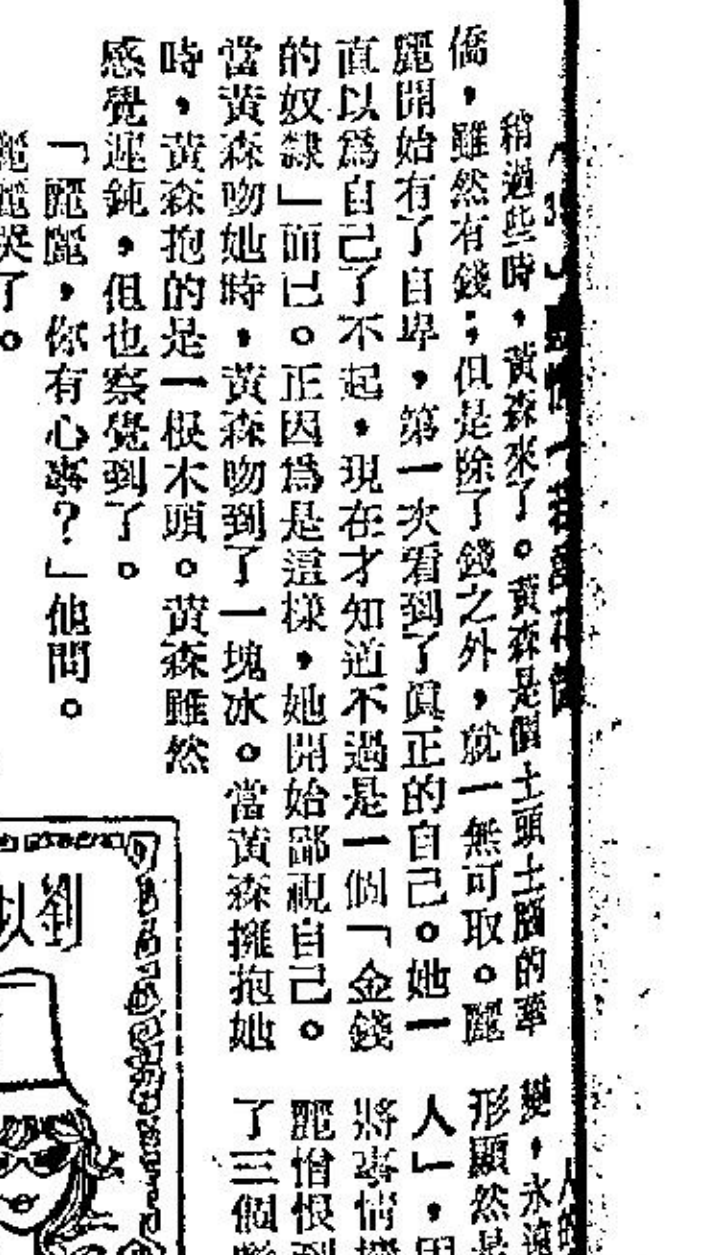 稍過些時,黃森來了。黃森是個土頭土腦的華
僑,雖然有錢;但是除了錢之外,就一無可取。麗
麗開始有了自卑,第一次看到了眞正的自己。她一
直以爲自己了不起,現在才知道不過是一個「金錢
的奴隸」而已。正因爲是這樣,她開始鄙視自己。
當黃森吻她時,黃森吻到了一塊冰。當黃森擁抱她
時,黃森抱的是一根木頭。黃森雖然
感覺遲鈍,但也察覺到了。
「麗麗,你有心事?」他問。
麗麗哭了。
變,永遠
形顯然是
人」,因
將事情
麗憎恨到
了三個
劉以